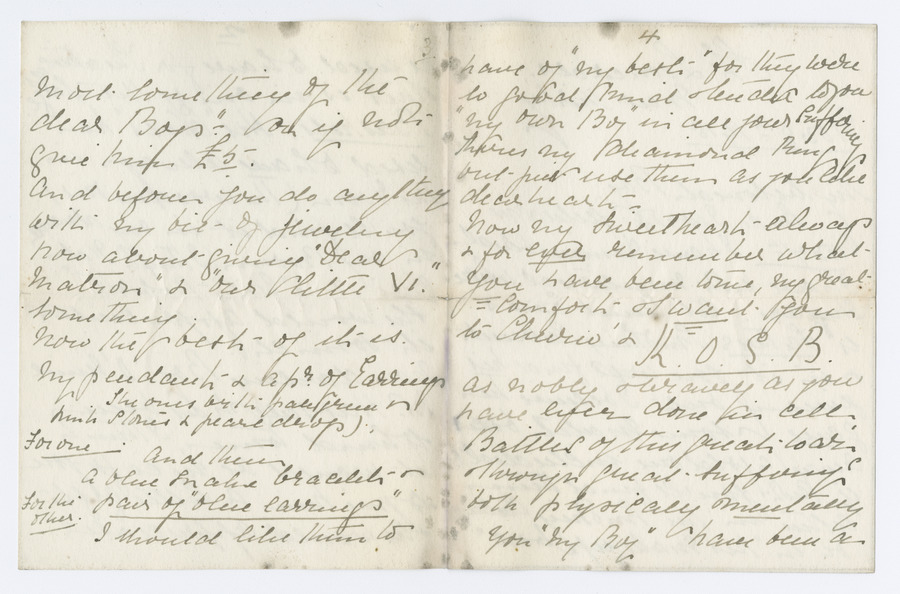 most something of the
dear Boys" or if not
give him £5.
And before you do anything
with my bit of jewelry
now about giving "Dear
Matron" & "our little Vi."
something.
Now the best of it is.
My pendant & a pr. of Earrings
The ones with pale green &
pink stones & pearl drops).
For one
and then
a blue snake bracelet &
For the
other.
pair of "blue earrings"
I should like them to
4
have of "my best" for they were
so good kind & tender to you
"my own Boy" in all your suffering
There's my diamond Ring
but just use them as you like
dear heart
Now my Sweetheart always
& for ever remember what
you have been to me, my great
comfort & I want you
to &
K. O. S. B.
as nobly & bravely as you
have ever done in all
Battles of this great war
through great suffering
both physically mentally
You "My Boy" have been a